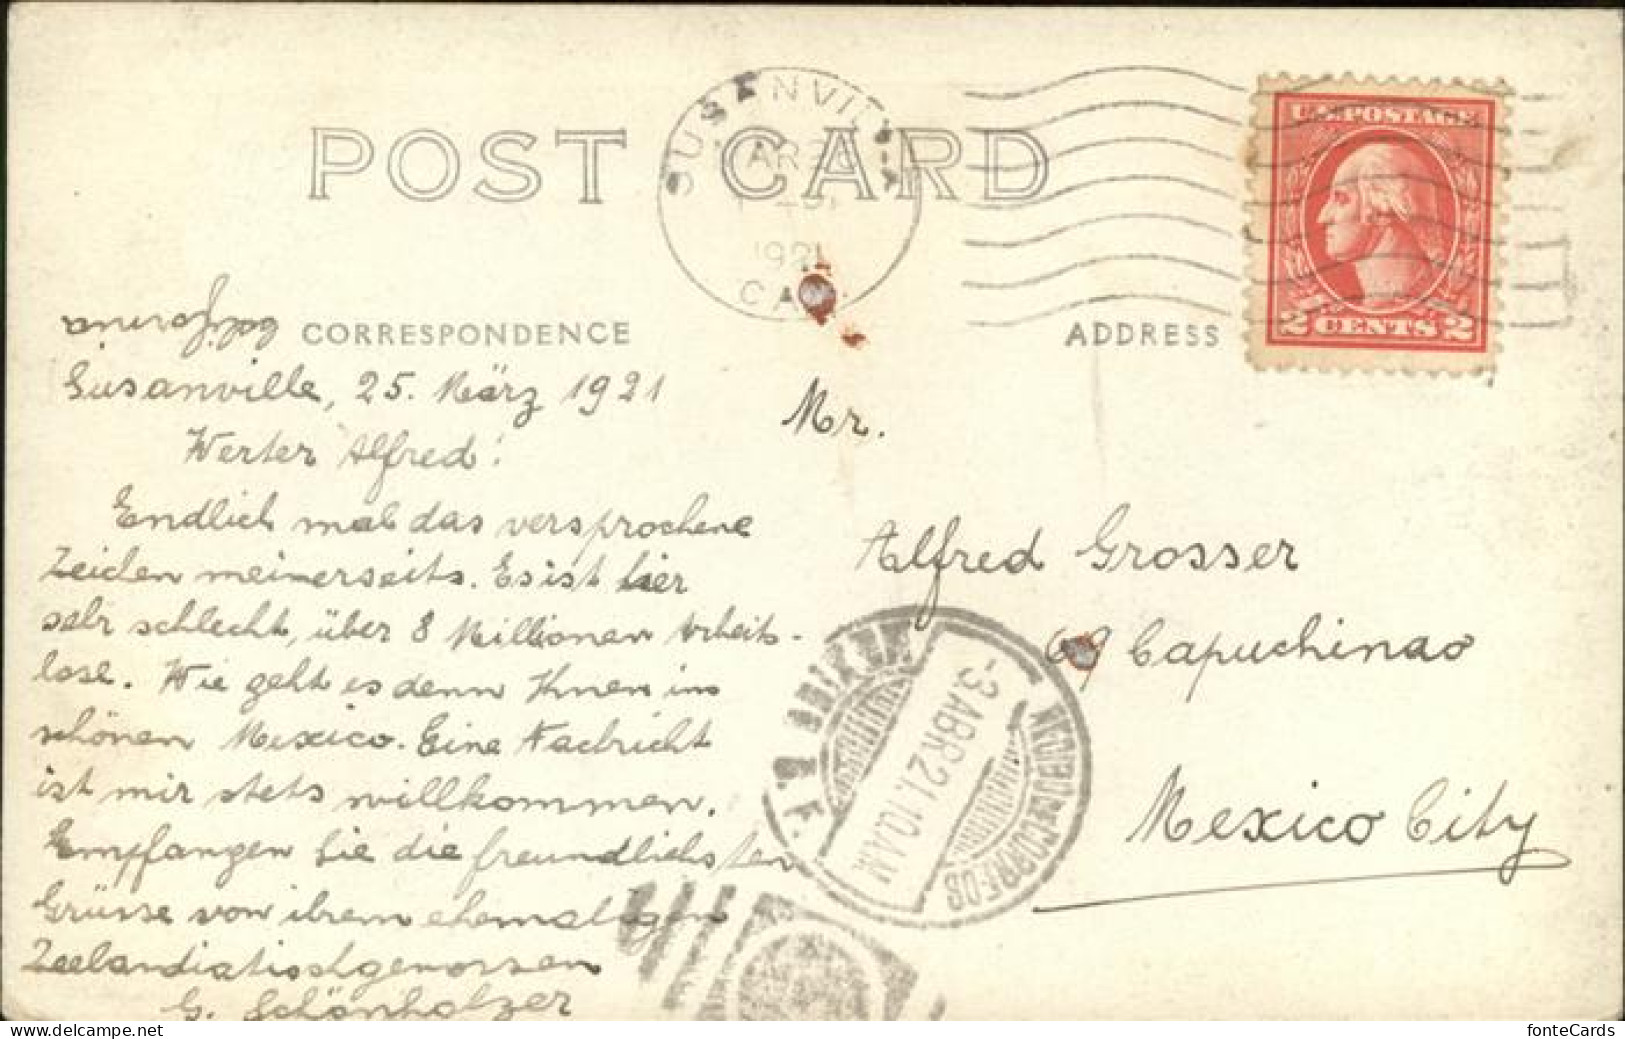 POST CARD
SUSANVILLE
1921
CAL
U.S. POSTAGE
2 CENTS 2
California
CORRESPONDENCE
ADDRESS
Susanville, 25. März 1921
Werter Alfred!
Endlich mal das versprochene
Zeichen meinerseits. Es ist hier
sehr schlecht, über 8 Millionen Arbeits-
lose. Wie geht es denn Ihnen im
schönen Mexico. Eine Nachricht
ist mir stets willkommen.
Empfangen Sie die freundlichsten
Grüsse von ihrem ehemaligen
Zeelandiatischgenossen
G. Schönholzer
Mr.
Alfred Grosser
69 Capuchinas
Mexico City
-3.ABR.21.10 A.M.
D.F.
fonteCards